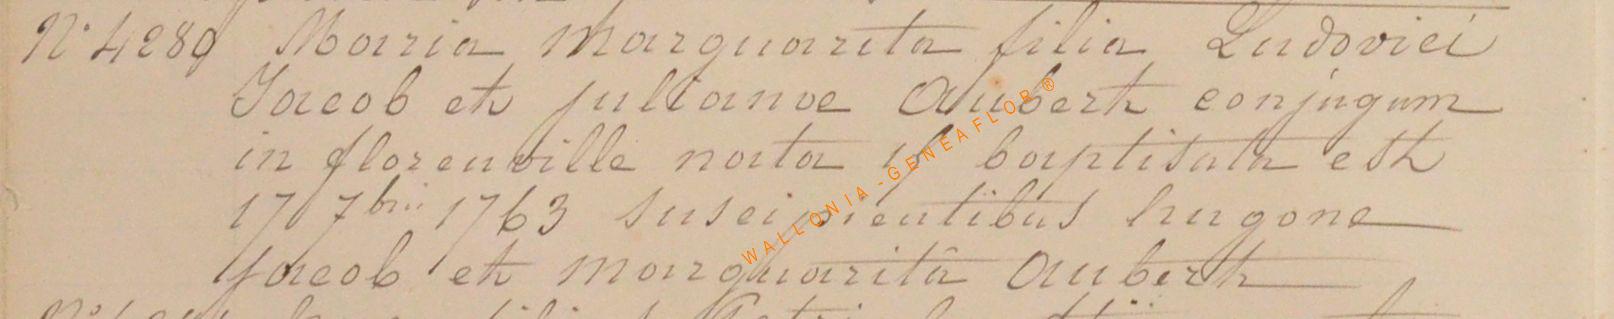 N° 4289 Maria Marguarita filia Ludovici
Jacob et julianae Aubert conjugum
in florenville nata et baptisata est
17 7bris 1763 suscipientibus hugone
jacob et Marguaritâ Aubert
WALLONIA-GENEAFLOR®